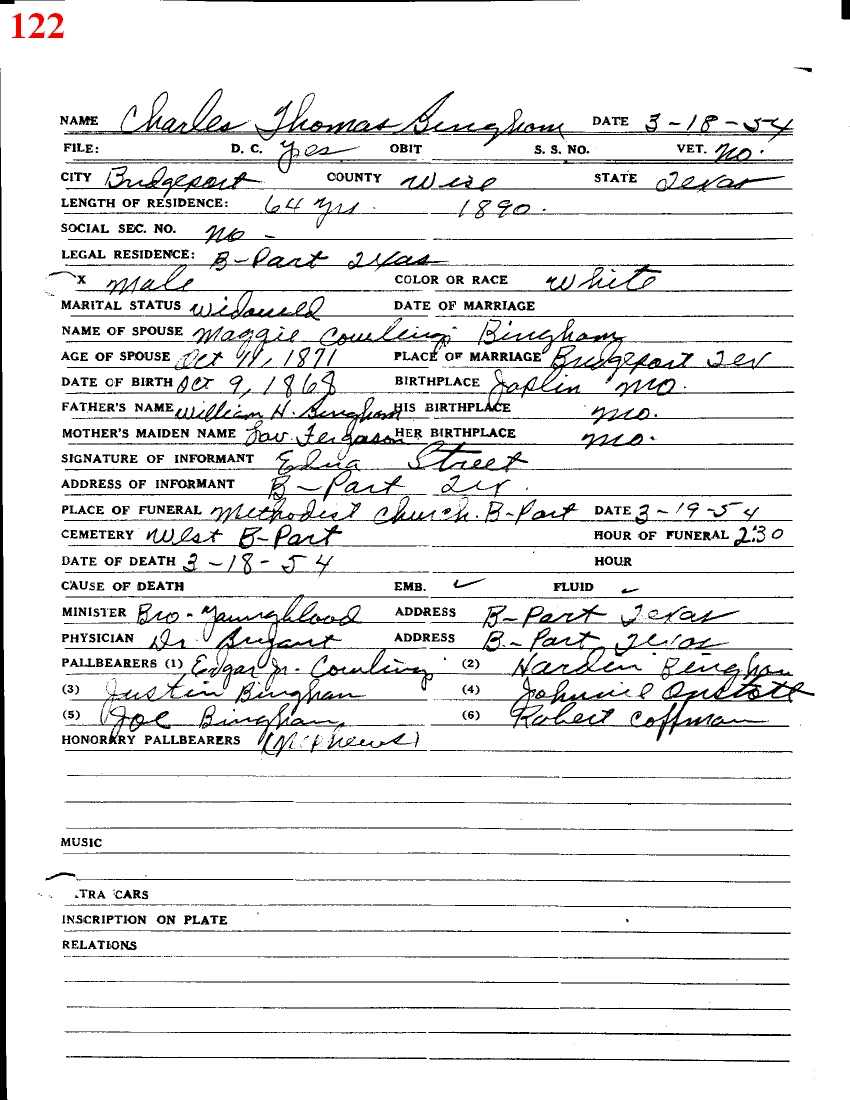 122
NAME Charles Thomas Bingham DATE 3-18-54
FILE: D. C. Yes OBIT S. S. NO. VET. No.
CITY Bridgeport COUNTY Wise STATE Texas
LENGTH OF RESIDENCE: 64 yrs. 1890.
SOCIAL SEC. NO. No -
LEGAL RESIDENCE: B-Part Texas
X Male COLOR OR RACE White
MARITAL STATUS Widowed DATE OF MARRIAGE
NAME OF SPOUSE Maggie Cowling Bingham
AGE OF SPOUSE Oct 11, 1871 PLACE OF MARRIAGE Bridgeport Tex
DATE OF BIRTH Oct 9, 1868 BIRTHPLACE Joplin Mo.
FATHER'S NAME William H. Bingham HIS BIRTHPLACE Mo.
MOTHER'S MAIDEN NAME Lou. Fergason HER BIRTHPLACE Mo.
SIGNATURE OF INFORMANT Edna Street
ADDRESS OF INFORMANT B-Part Tex.
PLACE OF FUNERAL Methodist Church. B-Part DATE 3-19-54
CEMETERY West B-Part HOUR OF FUNERAL 2:30
DATE OF DEATH 3-18-54 HOUR
CAUSE OF DEATH EMB. ✓ FLUID ✓
MINISTER Bro-Youngblood ADDRESS B-Part Texas
PHYSICIAN Dr Bryant ADDRESS B-Part Texas
PALLBEARERS (1) Edgar Jr. Cowling (2) Hardin Bingham
(3) Justin Bingham (4) Johnnie Onstott
(5) Joe Bingham (6) Robert Coffman
HONORARY PALLBEARERS (Nephews)
MUSIC
TRA CARS
INSCRIPTION ON PLATE
RELATIONS